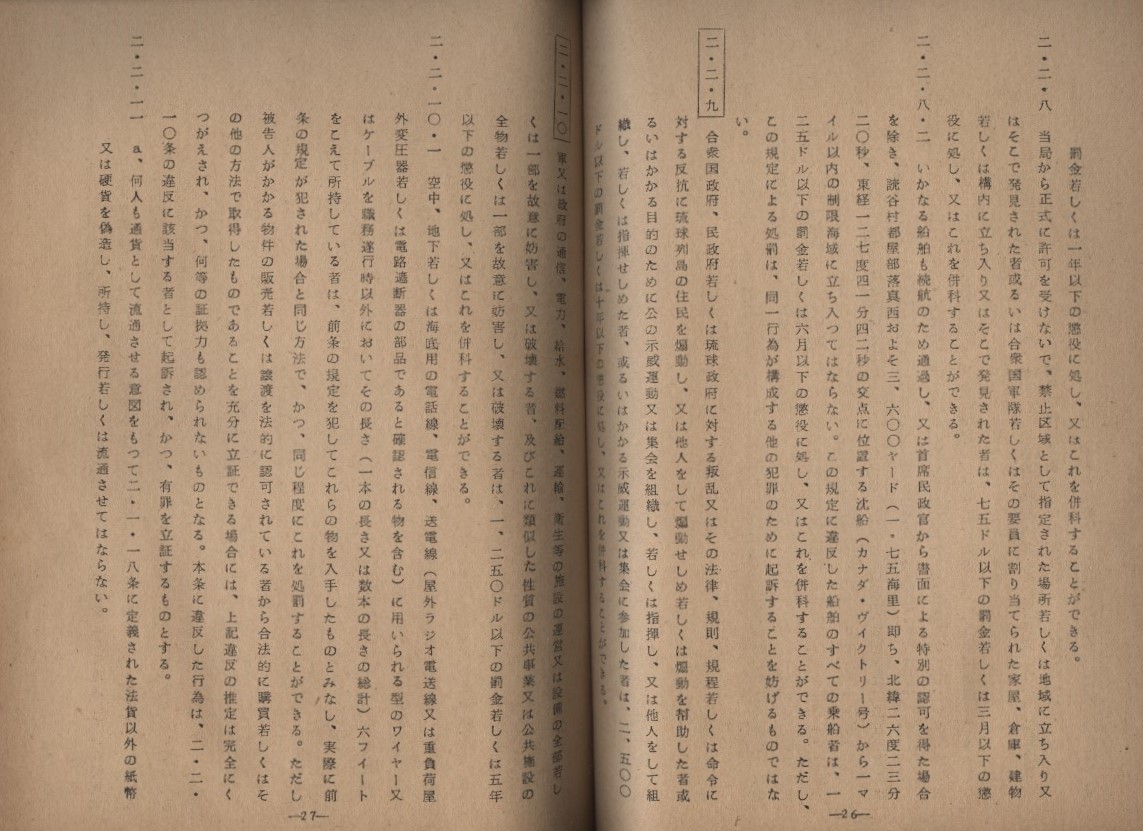 罰金若しくは一年以下の懲役に処し、又はこれを併科することができる。
二・二・八　当局から正式に許可を受けないで、禁止区域として指定された場所若しくは地域に立ち入り又
はそこで発見された者或るいは合衆国軍隊若しくはその要員に割り当てられた家屋、倉庫、建物
若しくは構内に立ち入り又はそこで発見された者は、七五ドル以下の罰金若しくは三月以下の懲
役に処し、又はこれを併科することができる。
二・二・八・二　いかなる船舶も続航のため通過し、又は首席民政官から書面による特別の認可を得た場合
を除き、読谷村都屋部落真西およそ三、六〇〇ヤード（一・七五海里）即ち、北緯二六度二三分
二〇秒、東経一二七度四一分四二秒の交点に位置する沈船（カナダ・ヴィクトリー号）から一マ
イル以内の制限海域に立ち入つてはならない。この規定に違反した船舶のすべての乗船者は、一
二五ドル以下の罰金若しくは六月以下の懲役に処し、又はこれを併科することができる。ただし、
この規定による処罰は、同一行為が構成する他の犯罪のために起訴することを妨げるものではな
い。
二・二・九　合衆国政府、民政府若しくは琉球政府に対する叛乱又はその法律、規則、規程若しくは命令に
対する反抗に琉球列島の住民を煽動し、又は他人をして煽動せしめ若しくは煽動を幇助した者或
るいはかかる目的のために公の示威運動又は集会を組織し、若しくは指揮し、又は他人をして組
織し、若しくは指揮せしめた者、或るいはかかる示威運動又は集会に参加した者は、二、五〇〇
ドル以下の罰金若しくは十年以下の懲役に処し、又はこれを併科することができる。
—26—
二・二・一〇　軍又は政府の通信、電力、給水、燃料配給、運輸、衛生等の施設の運営又は設備の全部若し
くは一部を故意に妨害し、又は破壊する者、及びこれに類似した性質の公共事業又は公共施設の
全物若しくは一部を故意に妨害し、又は破壊する者は、一、二五〇ドル以下の罰金若しくは五年
以下の懲役に処し、又はこれを併科することができる。
二・二・一〇・一　空中、地下若しくは海底用の電話線、電信線、送電線（屋外ラジオ電送線又は重負荷屋
外変圧器若しくは電路遮断器の部品であると確認される物を含む）に用いられる型のワイヤー又
はケーブルを職務遂行時以外においてその長さ（一本の長さ又は数本の長さの総計）六フイート
をこえて所持している者は、前条の規定を犯してこれらの物を入手したものとみなし、実際に前
条の規定が犯された場合と同じ方法で、かつ、同じ程度にこれを処罰することができる。ただし
被告人がかかる物件の販売若しくは譲渡を法的に認可されている者から合法的に購買若しくはそ
の他の方法で取得したものであることを充分に立証できる場合には、上記違反の推定は完全にく
つがえされ、かつ、何等の証拠力も認められないものとなる。本条に違反した行為は、二・二・
一〇条の違反に該当する者として起訴され、かつ、有罪を立証するものとする。
二・二・一一　a、何人も通貨として流通させる意図をもつて二・一・一八条に定義された法貨以外の紙幣
又は硬貨を偽造し、所持し、発行若しくは流通させてはならない。
—27—